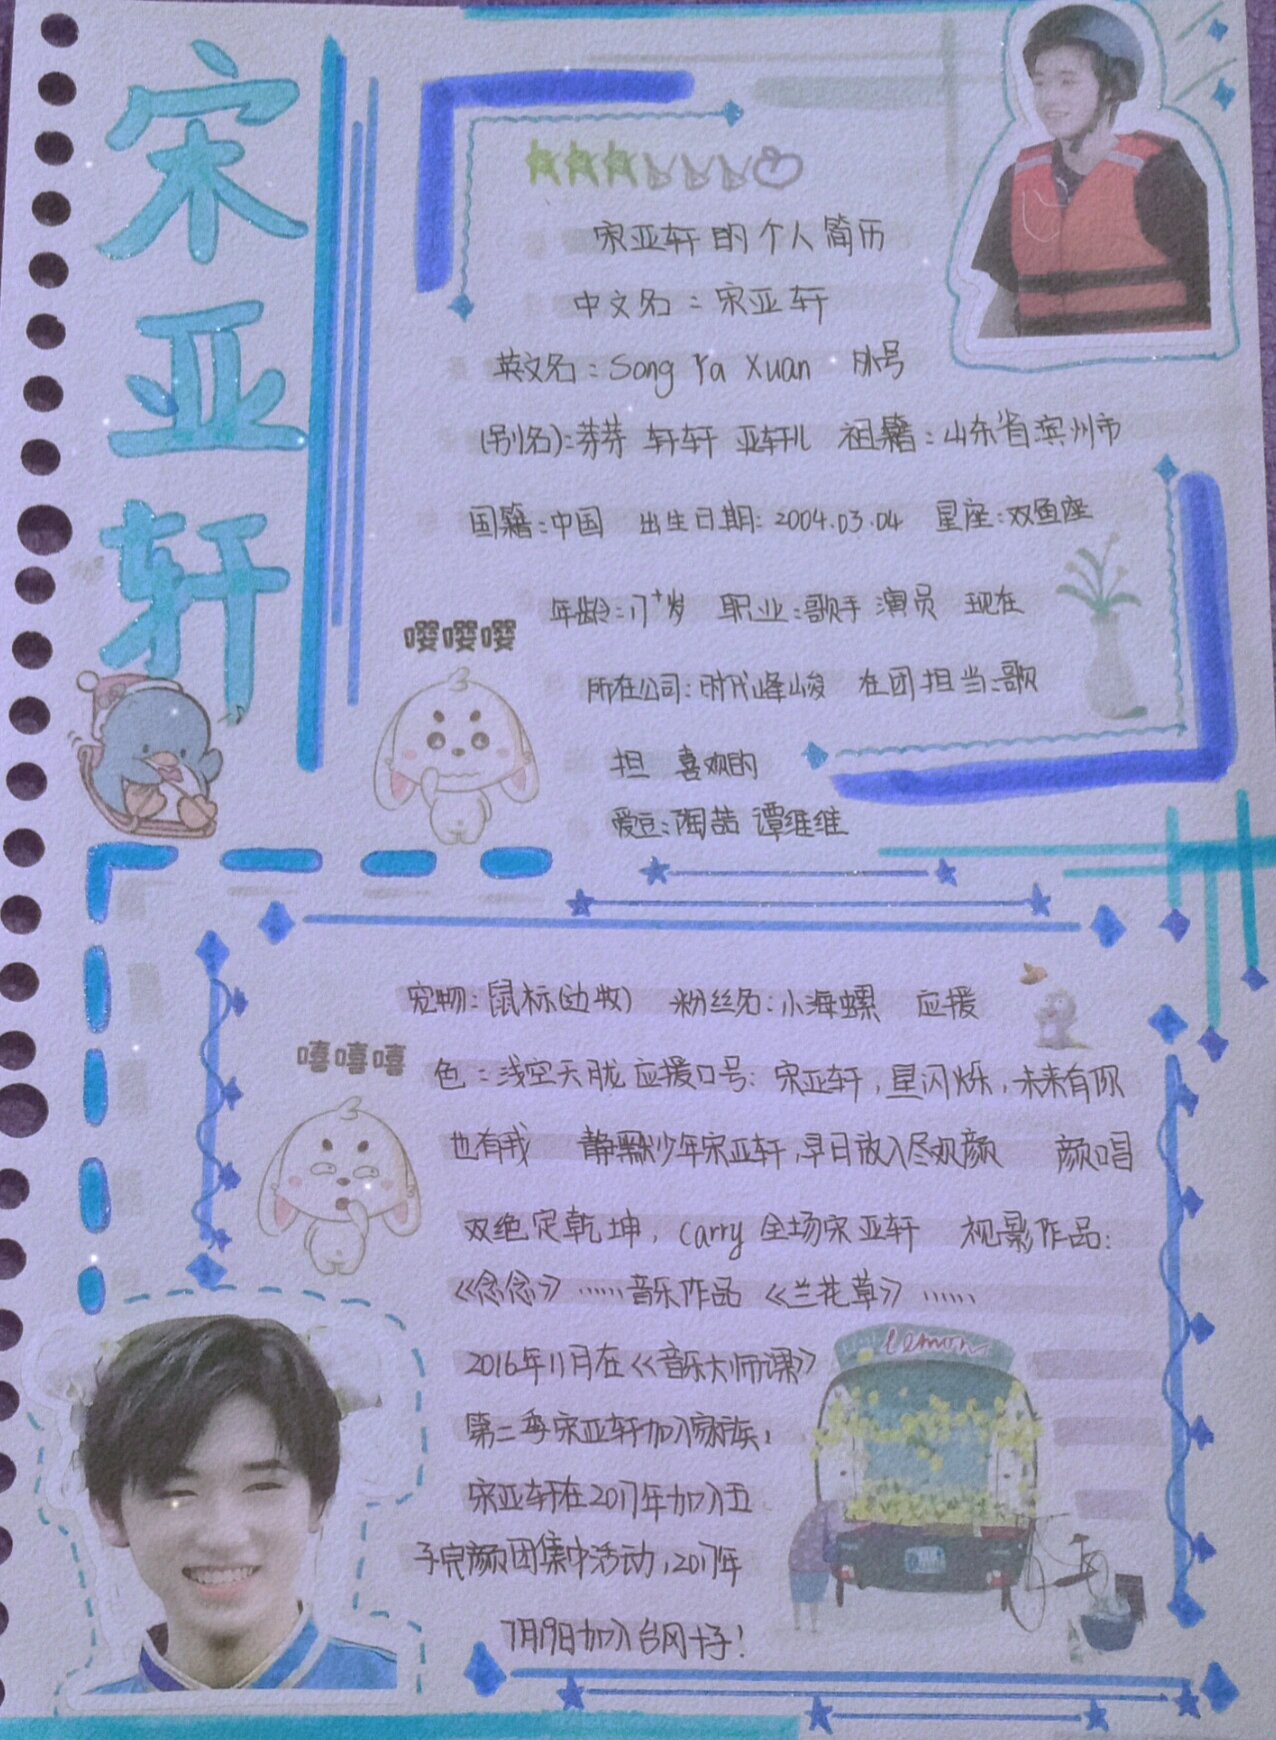 宋亚轩
宋亚轩的个人简历
中文名：宋亚轩
英文名：Song Ya Xuan 外号
(别名)：芽芽 轩轩 亚轩儿 祖籍：山东省滨州市
国籍：中国 出生日期：2004.03.04 星座：双鱼座
年龄：17+岁 职业：歌手 演员 现在
嘤嘤嘤
所在公司：时代峰峻 在团担当：歌
担 喜欢的
爱豆：陶喆 谭维维
宠物：鼠标(边牧) 粉丝名：小海螺 应援
嘻嘻嘻
色：浅空天胧 应援口号：宋亚轩，星闪烁，未来有你
也有我 静默少年宋亚轩，早日放入尽欢颜 颜唱
双绝定乾坤，carry 全场宋亚轩 视影作品：
《念念》……音乐作品《兰花草》……
lemon
2016年11月在《音乐大师课》
第二季宋亚轩加入家族，
宋亚轩在2017年加入五
子完颜团集中活动，2017年
7月19日加入台风十子！